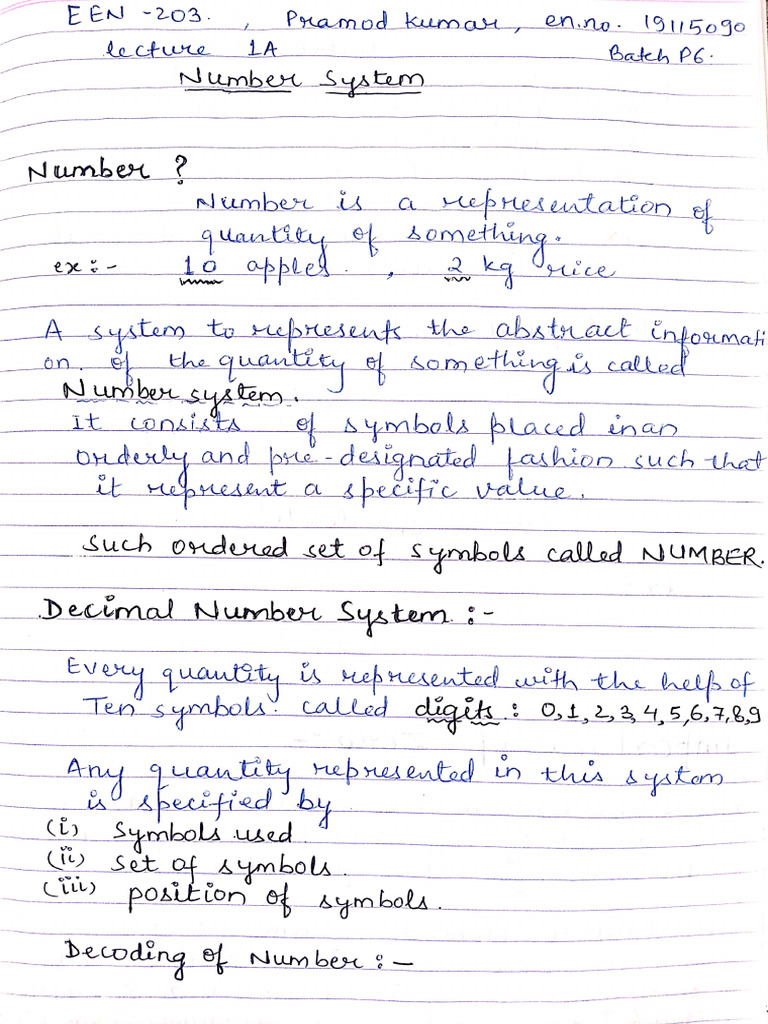 EEN -203. , Pramod Kumar, en.no. 19115090
lecture 1A Batch P6.
Number System
Number ?
Number is a representation of
quantity of something.
ex :- 10 apples. , 2 kg rice
A system to represents the abstract informati
on. of the quantity of something is called
Number system.
It consists of symbols placed in an
orderly and pre-designated fashion such that
it represent a specific value.
Such ordered set of symbols called NUMBER.
Decimal Number System :-
Every quantity is represented with the help of
Ten symbols. called digits : 0,1,2,3,4,5,6,7,8,9
Any quantity represented in this system
is specified by
(i) Symbols used
(ii) Set of symbols.
(iii) position of symbols.
Decoding of Number :-